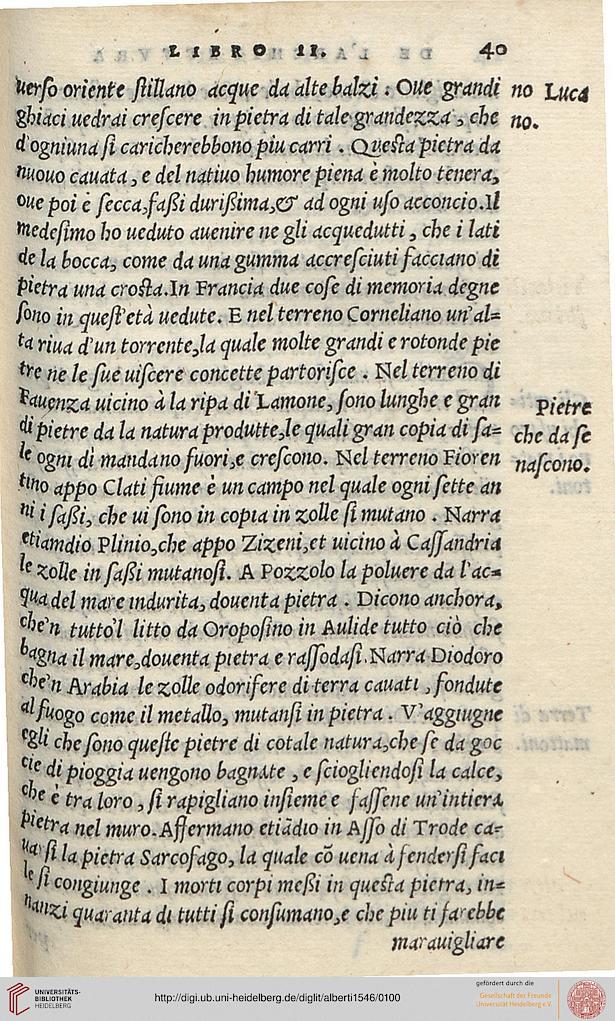 LIBRO II. 40
uerſo oriente ſtillano acque da alte balzi : Oue grandi
no Luca
ghiaci uedrai creſcere in pietra di tale grandezza, che
no.
d'ogniuna ſi caricherebbono piu carri . Queſta pietra da
nuouo cauata, e del natiuo humore piena è molto tenera,
oue poi è ſecca,faßi durißima,& ad ogni uſo acconcio.Il
medeſimo ho ueduto auenire ne gli acquedutti, che i lati
de la bocca, come da una gumma accreſciuti facciano di
pietra una croſta.In Francia due coſe di memoria degne
ſono in queſt'età uedute. E nel terreno Corneliano un'al=
ta riua d'un torrente,la quale molte grandi e rotonde pie
tre ne le ſue uiſcere concette partoriſce . Nel terreno di
Fauenza uicino à la ripa di Lamone, ſono lunghe e gran
Pietre
di pietre da la natura produtte,le quali gran copia di ſa=
che da ſe
le ogni di mandano fuori,e creſcono. Nel terreno Fioren
naſcono.
tino appo Clati fiume è un campo nel quale ogni ſette an
ni i ſaßi, che ui ſono in copia in zolle ſi mutano . Narra
etiamdio Plinio,che appo Zizeni,et uicino à Caſſandria
le zolle in ſaßi mutanoſi. A Pozzolo la poluere da l'ac=
qua del mare indurita, douenta pietra . Dicono anchora,
che'n tutto'l litto da Oropoſino in Aulide tutto ciò che
bagna il mare,douenta pietra e raſſodaſi.Narra Diodoro
che'n Arabia le zolle odorifere di terra cauati , fondute
al fuogo come il metallo, mutanſi in pietra . V'aggiugne
egli che ſono queſte pietre di cotale natura,che ſe da goc
cie di pioggia uengono bagnate , e ſciogliendoſi la calce,
che è tra loro , ſi rapigliano inſieme e faſſene un'intiera
pietra nel muro. Affermano etiādio in Aſſo di Trode ca=
uarſi la pietra Sarcofago, la quale cō uena à fenderſi faci
le ſi congiunge . I morti corpi meßi in queſta pietra, in=
nanzi quaranta di tutti ſi conſumano,e che piu ti farebbe
marauigliare
UNIVERSITÄTS-
BIBLIOTHEK
HEIDELBERG
http://digi.ub.uni-heidelberg.de/diglit/alberti1546/0100
gefördert durch die
Gesellschaft der Freunde
Universität Heidelberg e.V.